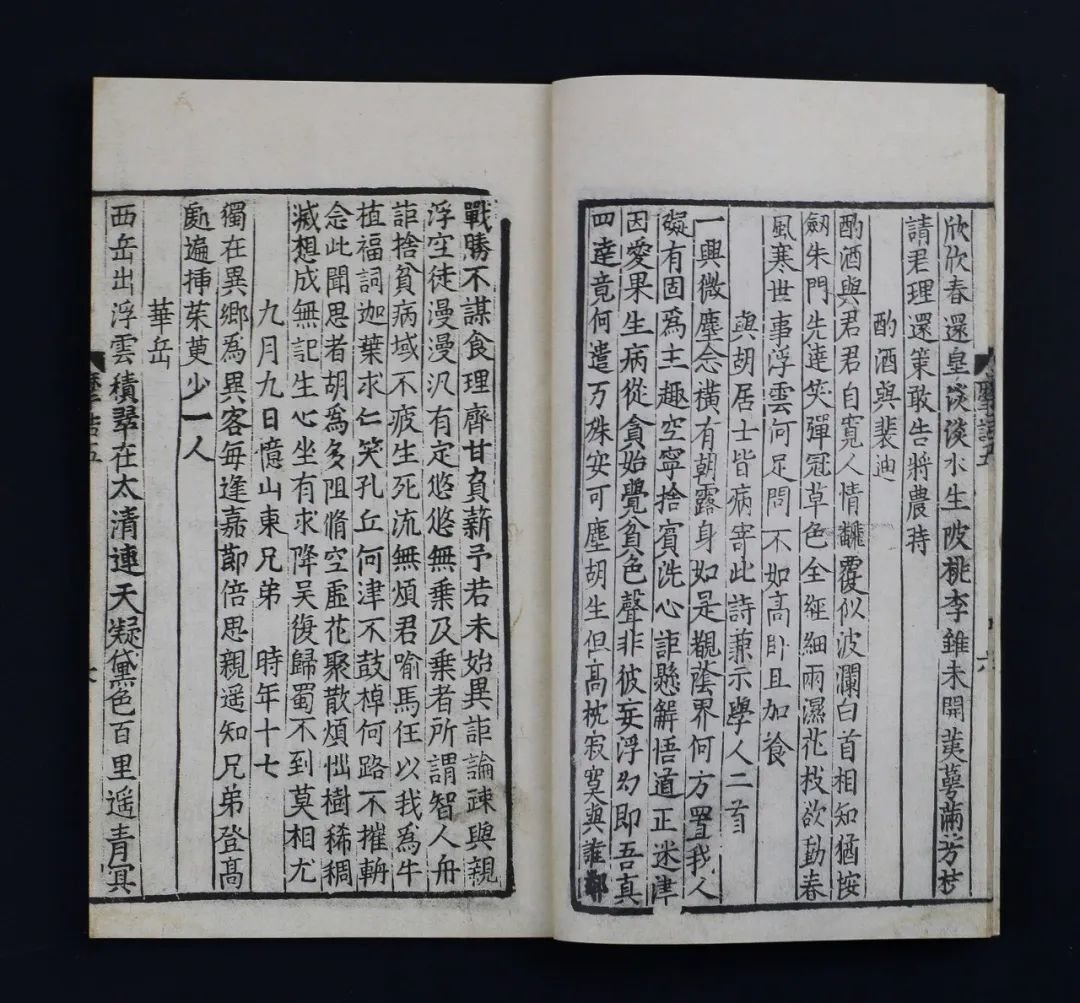 欣欣春還皐淡淡水生陂桃李雖未開荑萼滿芳枝
請君理還策敢告將農時
酌酒與裴迪
酌酒與君君自寬人情翻覆似波瀾白首相知猶按
劔朱門先達笑彈冠草色全經細雨濕花枝欲動春
風寒世事浮雲何足問不如高卧且加餐
與胡居士皆病寄此詩兼示學人二首
一興微塵念橫有朝露身如是觀蔭界何方置我人
礙有固爲主趣空寧捨賓洗心詎懸解悟道正迷津
因愛果生病從貪始覺貧色聲非彼妄浮幻即吾真
四達竟何遣万殊安可塵胡生但高枕寂寞與誰鄰
戰勝不謀食理齊甘負薪予若未始異詎論疎與親
浮空徒漫漫汎有定悠悠無乗及乗者所謂智人舟
詎捨貧病域不疲生死流無煩君喻馬任以我為牛
植福詞迦葉求仁笑孔丘何津不鼓棹何路不摧輈
念此聞思者胡爲多阻脩空虛花聚散煩惱樹稀稠
滅想成無記生心坐有求降吴復歸蜀不到莫相尤
九月九日憶山東兄弟 時年十七
獨在異鄉為異客毎逢嘉節倍思親遥知兄弟登高
處遍揷茱萸少一人
華岳
西岳出浮雲積翠在太清連天凝黛色百里遥青冥